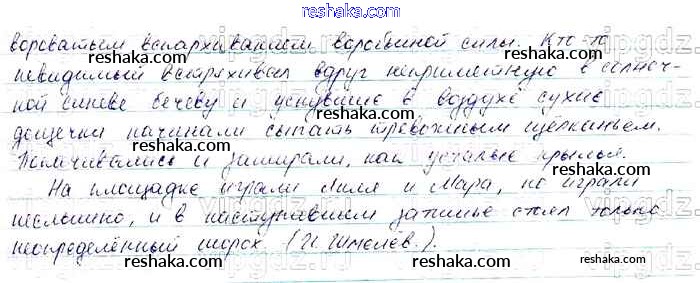 reshaka.com
вороватым вспархиванием воробьиной силы. Кто-то
невидимый встряхивал вдруг неприметную в солнеч-
ной синеве бечеву и уснувшие в воздухе сухие
дощечки начинали сыпать тревожным щёлканьем.
Покачивались и замирали, как усталые крылья.
На площадке играли Лиля и Мара, но играли
неслышно, и в наступившем затишье стоял только
неопределённый шорох (И. Шмелёв.).
reshaka.com reshaka.com
reshaka.com reshaka.com
reshaka.com reshaka.com
reshaka.com reshaka.com
reshaka.com